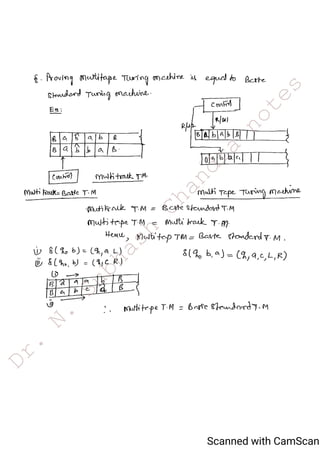 §. Proving multitape Turing machine is equal to Basic
Standard Turing machine.
Ex:
Control
R/W
R/W
B a b a b B
B B b a b B
B a b b a B
B a b b a
Control
Multi track TM
Multi track = Basic T.M
Multi Tape Turing Machine
Multitrack T.M = Basic Standard T.M
Multi tape T.M = Multi track T.M
Hence, Multi tap TM = Basic standard T.M.
i) δ(q₀ b) = (q, a L)
δ(q₀ b, a) = (q, a, c, L, R)
ii) δ(q₀, b) = (q, c R)
(i) →
B a a a b B
B a b c a B
ii)
∴ Multi tape T.M = Basic Standard T.M
Dr. N. Subhash Chandra notes
Scanned with CamScan